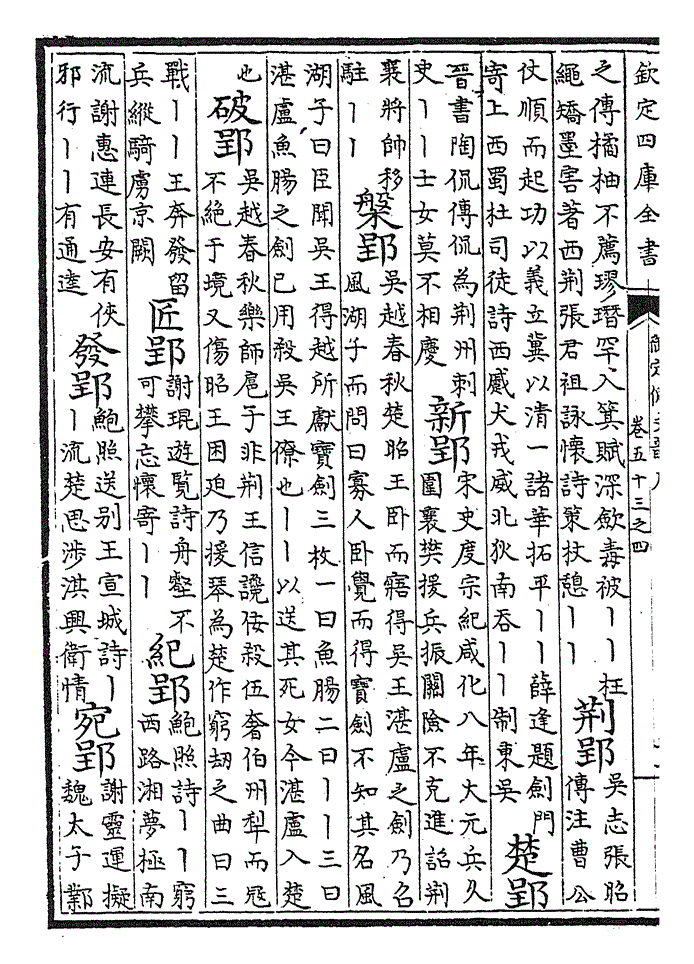 欽定四庫全書
卷五十三之四
之傳橘柚不薦璆瑨罕入箕賦深歛毒被丨丨枉
繩矯墨害著西荆張君祖詠懷詩策杖憩丨丨
荆郢
吳志張昭
傳注曹公
仗順而起功以義立冀以清一諸華拓平丨丨薛逢題劍門
寄上西蜀杜司徒詩西蹙犬戎威北狄南吞丨丨制東吳
楚郢
晉書陶侃傳侃為荆州刺
史丨丨士女莫不相慶
新郢
宋史度宗紀咸化八年大元兵久
圍襄樊援兵振關險不克進詔荆
襄將帥移
駐丨丨
槃郢
吳越春秋楚昭王卧而寤得吳王湛盧之劍乃召
風湖子而問曰寡人卧覺而得寶劍不知其名風
湖子曰臣聞吳王得越所獻寶劍三枚一曰魚腸二曰丨丨三曰
湛盧魚腸之劍已用殺吳王僚也丨丨以送其死女今湛盧入楚
也
破郢
吳越春秋樂師扈子非荆王信讒佞殺伍奢伯州犁而寇
不絕于境又傷昭王困迫乃援琴為楚作窮劫之曲曰三
戰丨丨王奔發留
兵縱騎虜京闕
匠郢
謝琨遊覽詩舟壑不
可攀忘懷寄丨丨
紀郢
鮑照詩丨丨窮
西路湘夢極南
流謝惠連長安有俠
邪行丨丨有通逵
發郢
鮑照送別王宣城詩丨
丨流楚思涉淇興衛情
宛郢
謝靈運擬
魏太子鄴